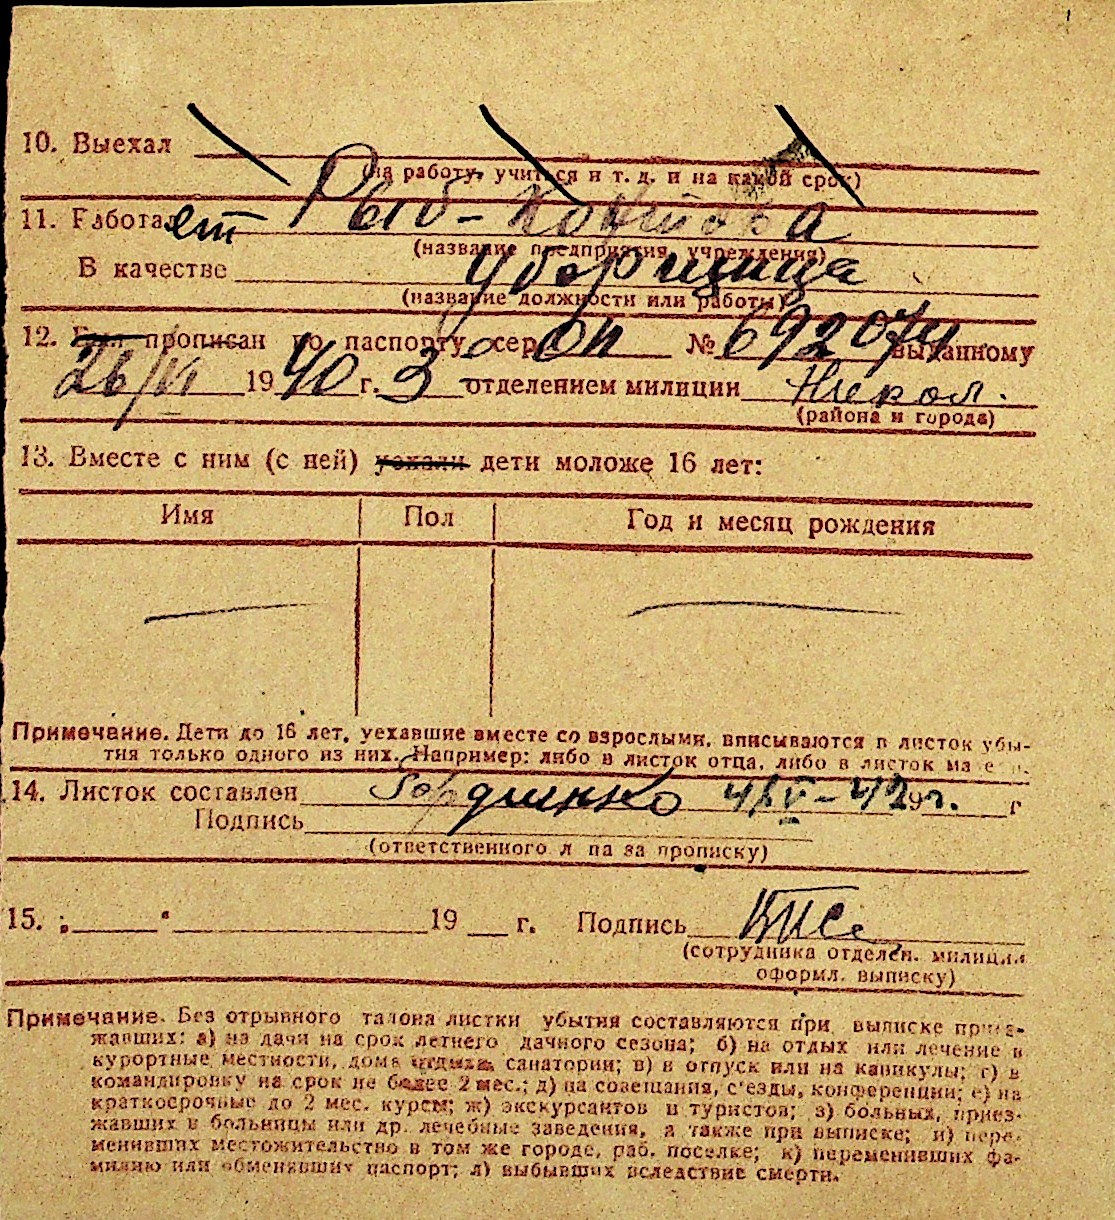 10. Выехал
(на работу, учиться и т. д. и на какой срок)
11. Работает Рыб-
(название предприятия, учреждения)
В качестве уборщица
(название должности или работы)
12. Был прописан по паспорту сер. № 692074 выданному
26/VI 1940 г. 3 отделением милиции Никол.
(района и города)
13. Вместе с ним (с ней) уехали дети моложе 16 лет:
Имя Пол Год и месяц рождения
Примечание. Дети до 16 лет, уехавшие вместе со взрослыми, вписываются в листок убы-
тия только одного из них. Например: либо в листок отца, либо в листок матери.
14. Листок составлен 4/V-42 г. г
Подпись
(ответственного лица за прописку)
15. „ “ 19 г. Подпись
(сотрудника отделен. милиции
оформл. выписку)
Примечание. Без отрывного талона листки убытия составляются при выписке приез-
жавших: а) на дачи на срок летнего дачного сезона; б) на отдых или лечение в
курортные местности, дома отдыха, санатории; в) в отпуск или на каникулы; г) в
командировку на срок не более 2 мес.; д) на совещания, с'езды, конференции; е) на
краткосрочные до 2 мес. курсы; ж) экскурсантов и туристов; з) больных, приез-
жавших в больницы или др. лечебные заведения, а также при выписке; и) пере-
менивших местожительство в том же городе, раб. поселке; к) переменивших фа-
милию или обменявших паспорт; л) выбывших вследствие смерти.